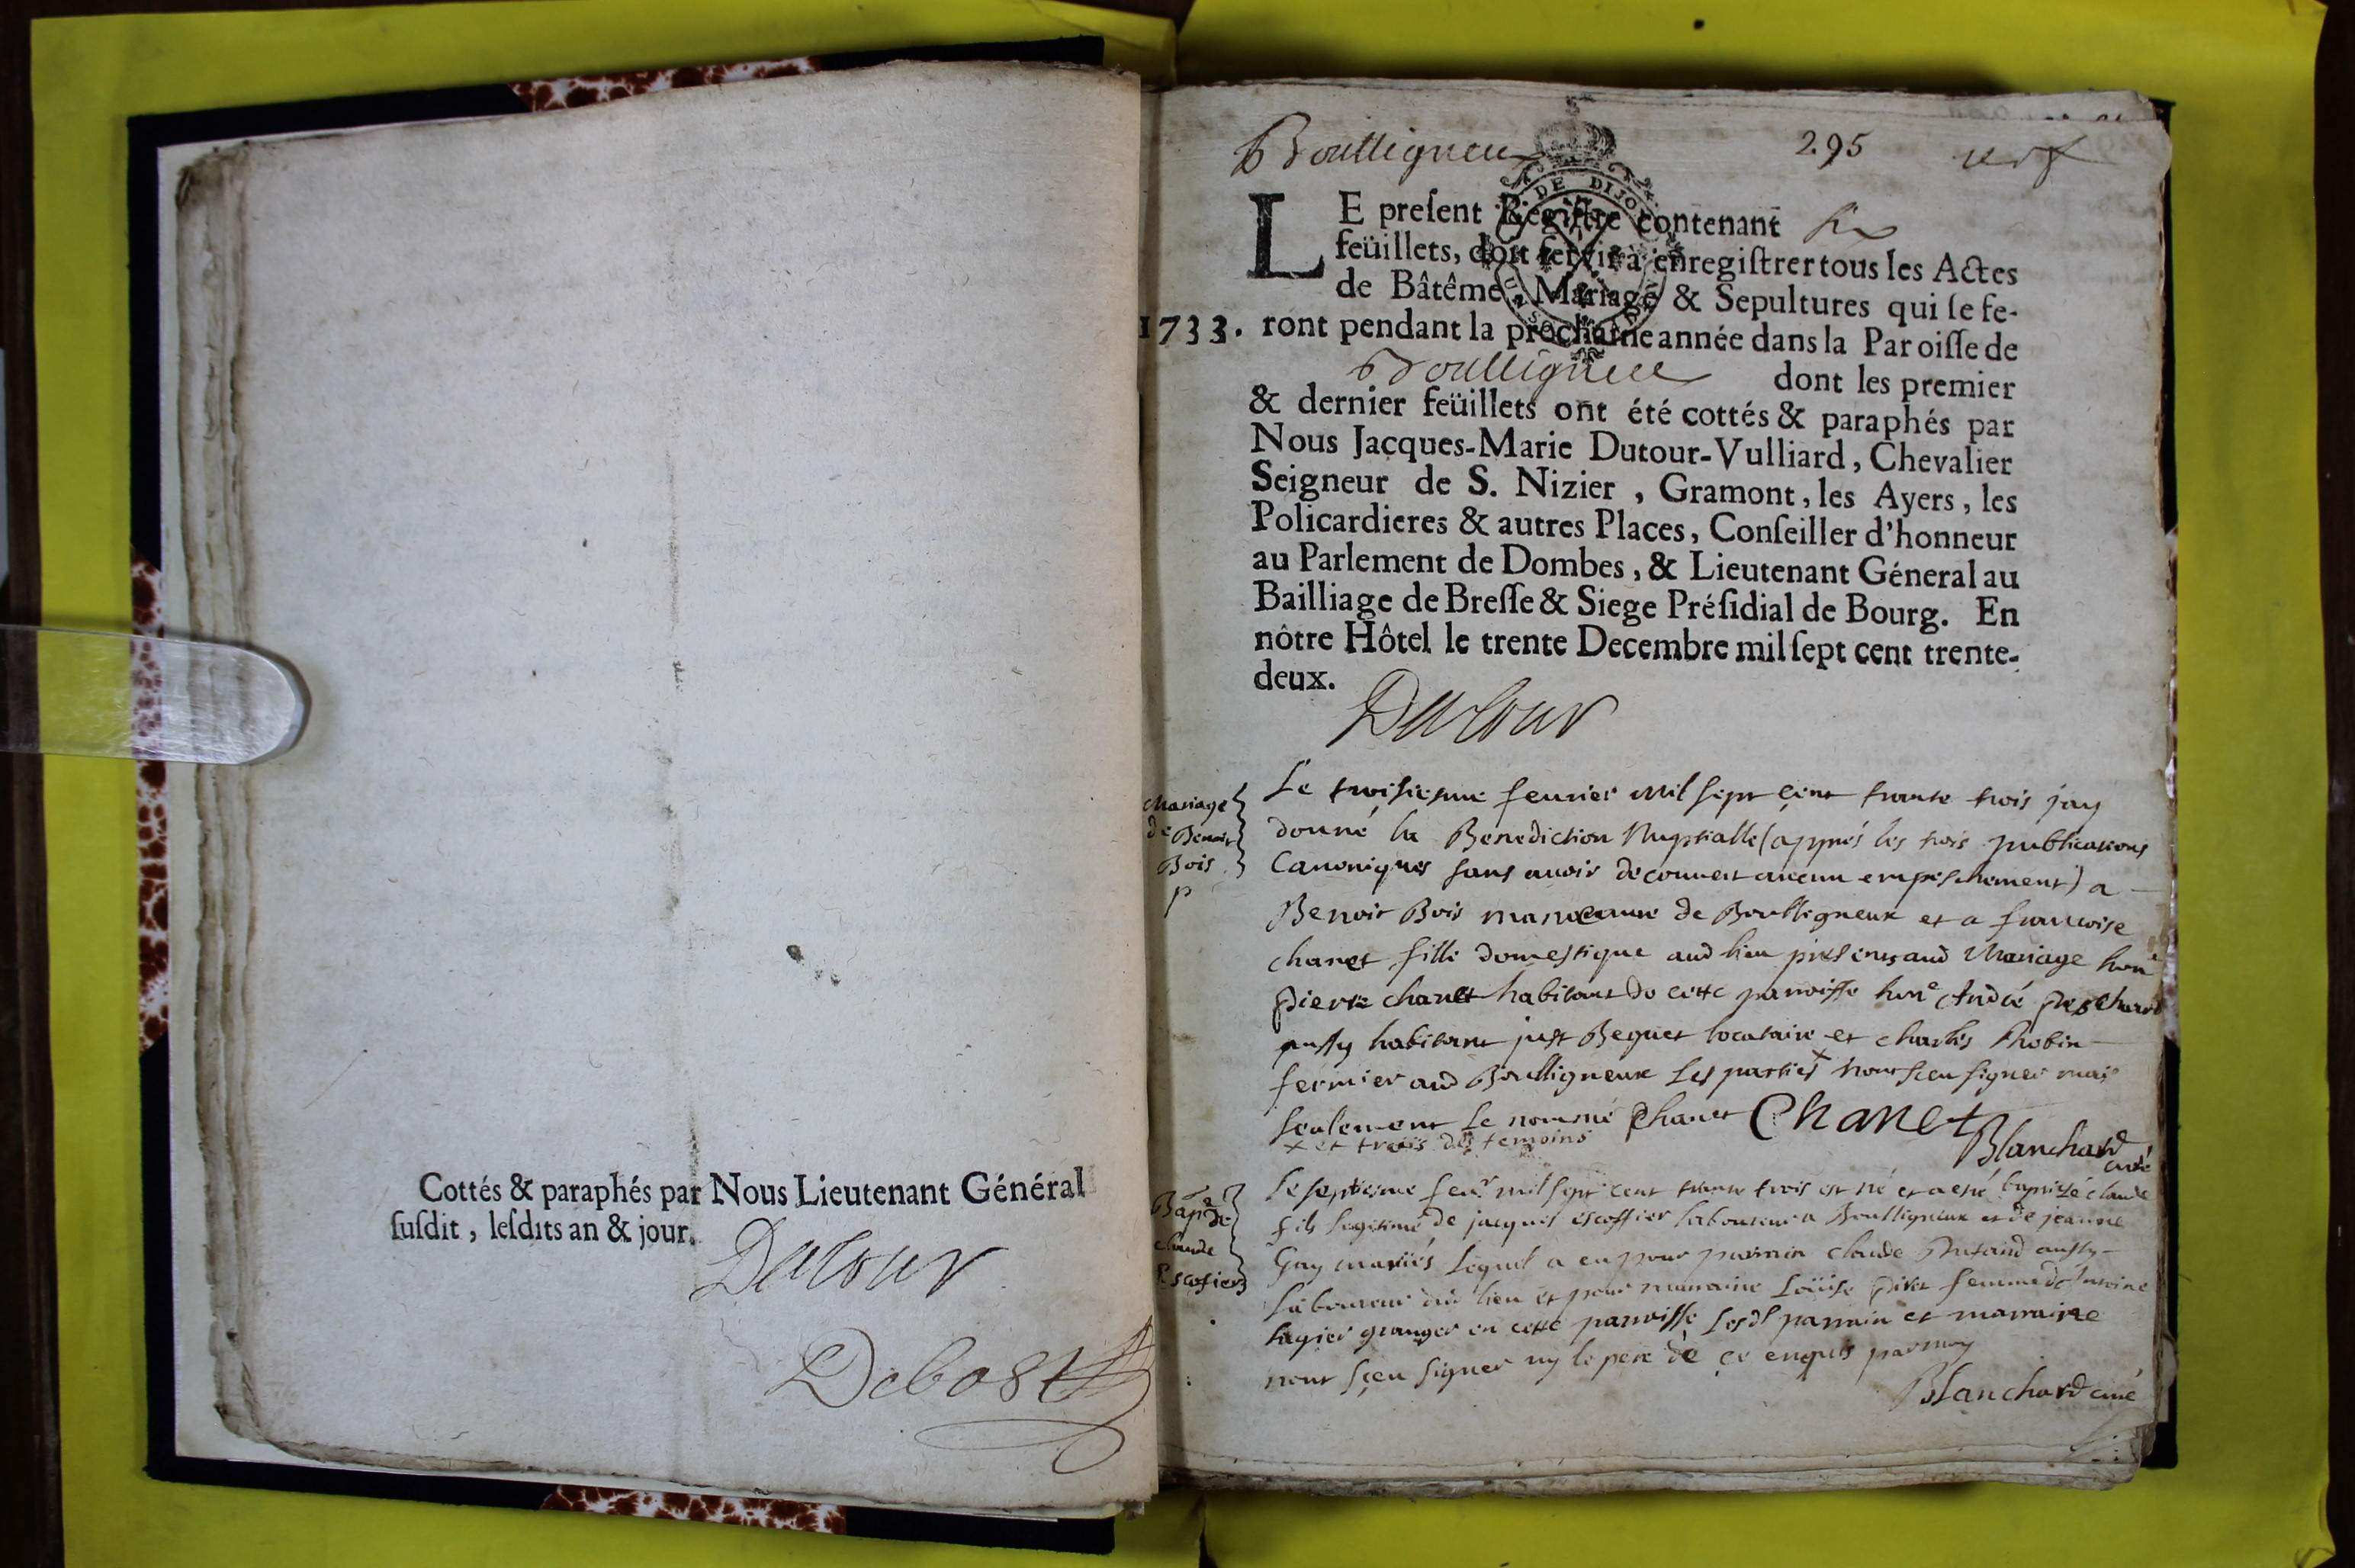 Cottés & paraphés par Nous Lieutenant Général
ſuſdit, leſdits an & jour.
Dutour
Debost
Boulligneux 295
DE DIJON
LE preſent Regiſtre contenant six
feüillets, doit ſervir à enregiſtrer tous les Actes
de Bâtême, Mariage & Sepultures qui ſe fe-
1733. ront pendant la prochaine année dans la Paroiſſe de
Boulligneux dont les premier
& dernier feüillets ont été cottés & paraphés par
Nous Jacques-Marie Dutour-Vulliard, Chevalier
Seigneur de S. Nizier, Gramont, les Ayers, les
Policardieres & autres Places, Conſeiller d'honneur
au Parlement de Dombes, & Lieutenant Géneral au
Bailliage de Breſſe & Siege Préſidial de Bourg. En
nôtre Hôtel le trente Decembre mil ſept cent trente-
deux.
Dutour
Mariage
de Benoit
Bois
p
Le troisiesme feurier mil sept cent trante trois jay
donné la Benediction Nuptialle (appres les trois publications
Canoniques sans auoir decouuert aucun empeschement) a
Benoit Bois manoeuure de Boulligneux et a francoise
chanet fille domestique aud lieu presents aud Mariage hon^e
pierre chanet habitant de cette parroisse hon^e André
aussy habitant just Beguet locataire et charles Robin
fermier aud Boulligneux Les parties x nont sceu signer mais
seulement le nommé Chanet Chanet
x et trois des temoins
Blanchard
curé
Bap^e de
claude
Escofier
Le septiesme feu^r mil sept cent trante trois est né et a esté baptisé claude
fils legitime de jacques escoffier laboureur a Boulligneux et de jeanne
Guy mariés lequel a eu pour parrain claude aussy
laboureur dud lieu et pour marraine Loüise femme de Antoine
granger en cette parroisse Lesd^s parrain et marraine
nont sceu signer ny le pere de ce enquis par moy
Blanchard curé